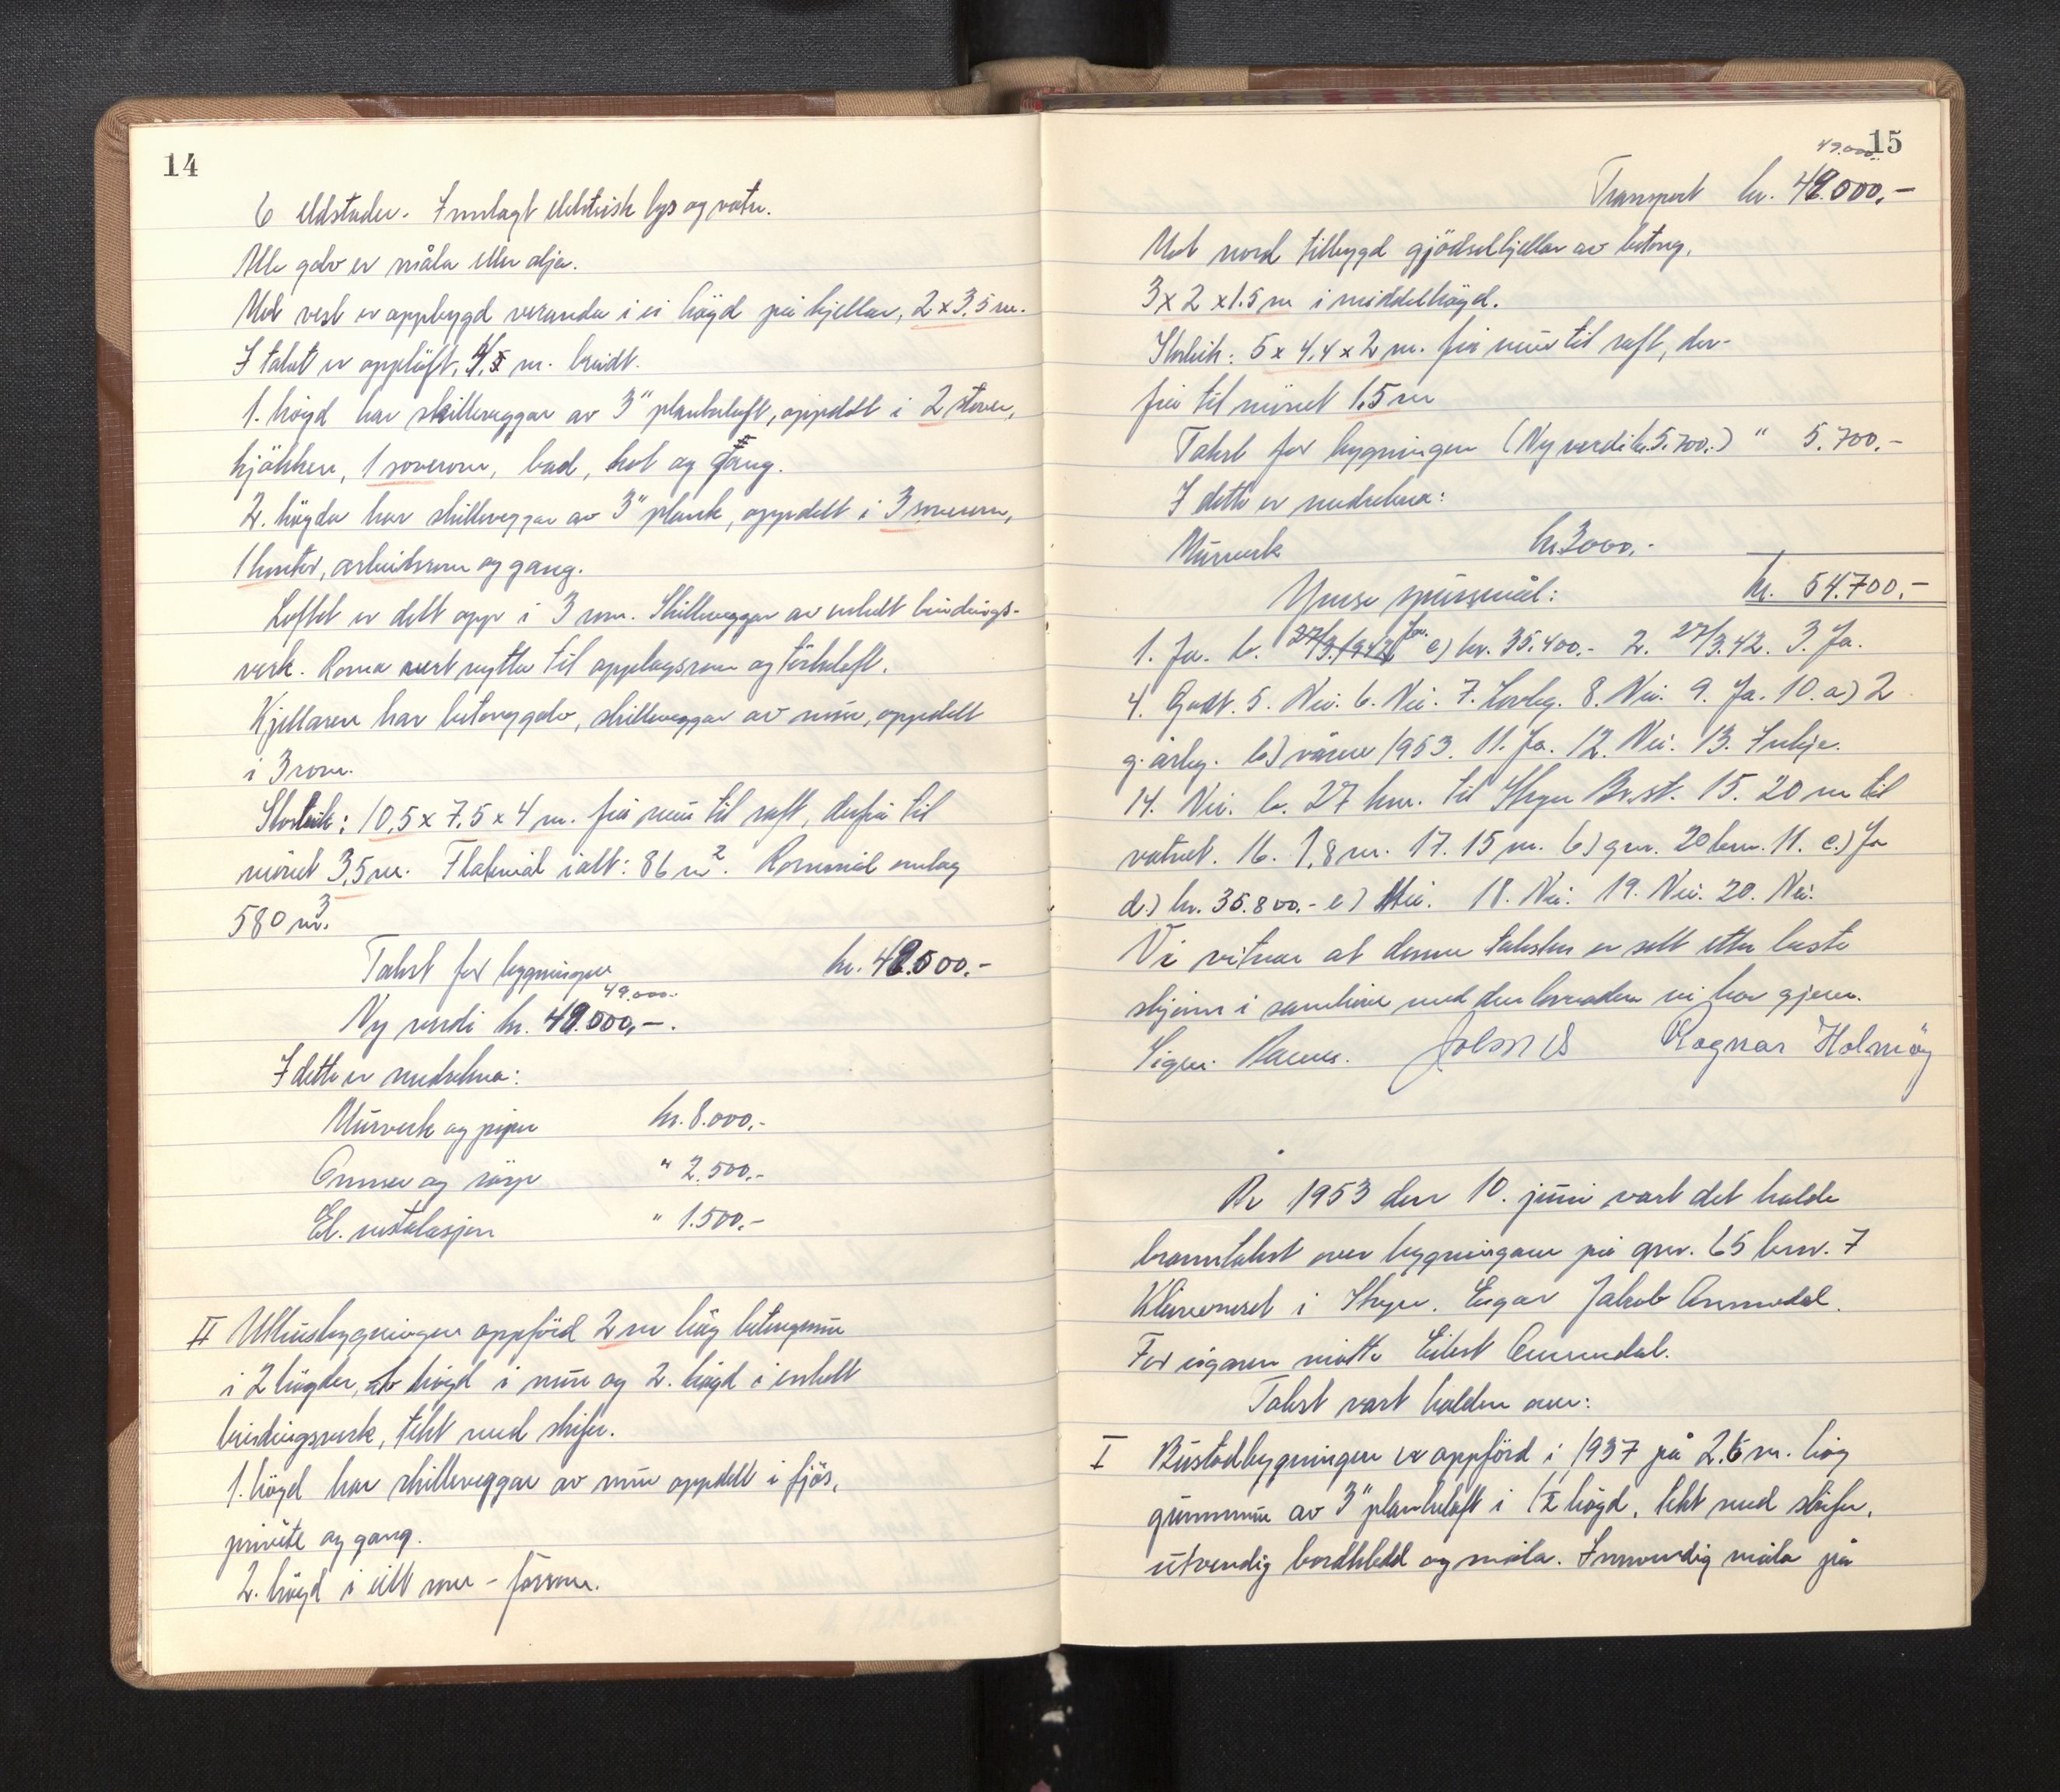 14
6 eldstader. Innlagt elektrisk lys og vatn.
Alle golv er måla eller olja.
Mot vest er oppbygd veranda i ei högd på kjellar, 2 x 3,5 m.
I taket er opplöft, 4,5 m. breidt.
1. högd har skilleveggar av 3" plankeloft, oppdelt i 2 stover,
kjökken, 1 soverom, bad, kot og gang.
2. högda har skilleveggar av 3" plank, oppdelt i 3 soverom,
1 kontor, arbeidsrom og gang.
Loftet er delt opp i 3 rom. Skilleveggar av enkelt bindings-
verk. Roma vert nytta til opplagsrom og törkeloft.
Kjellaren har betonggolv, skilleveggar av mur, oppdelt
i 3 rom.
Storleik: 10,5 x 7,5 x 4 m. frå mur til raft, derfrå til
mönet 3,5 m. Flatemål ialt: 86 m². Romemål omlag
580 m³.
Takst for bygningen kr. 48.500.-
49.000.-
Ny verdi kr. 49.000,-.
I dette er medrekna:
Murverk og pipe kr. 8.000.-
Omner og röyr " 2.500.-
El. installasjon " 1.500.-
II Uthusbygningen oppförd 2 m hög betongmur
i 2 högder, högd i mur og 2. högd i enkelt
bindingsverk, tekt med skifer.
1. högd har skilleveggar av mur oppdelt i fjös,
privéte og gang.
2. högd i eitt rom - forrom.
15
49.000.-
Transport kr. 49.000,-
Mot nord tilbygd gjödselkjellar av betong,
3 x 2 x 1.5 m i middelhögd.
Storleik: 5 x 4,4 x 2 m. frå mur til raft, der-
frå til mönet 1.5 m
Takst for bygningen (Ny verdi kr. 5.700.-) " 5.700.-
I dette er medrekna:
Murverk kr. 3000.-
kr. 54.700.-
Ymse spursmål:
1. Ja. b. 27/3.1942 Ja. c) kr. 35.400.- 2. 27/3.42. 3. Ja.
4. Godt. 5. Nei. 6. Nei. 7. Lovleg. 8. Nei. 9. Ja. 10. a) 2
g. årleg. b) våren 1953. 11. Ja. 12. Nei. 13. Inkje.
14. Nei. b. 27 km. til Stryn Br.st. 15. 20 m til
vatnet. 16. 1,8 m. 17. 15 m. b) gnr. 20 bnr. 11. c.) Ja
d.) kr. 35.800.- e) Nei. 18. Nei. 19. Nei. 20. Nei.
Vi vitnar at denne taksten er sett etter beste
skjönn i samhöve med den lovnaden vi har gjeve.
Ragnar Holmöy
År 1953 den 10. juni vart det halde
branntakst over bygningane på gnr. 65 bnr. 7
i Stryn. Eigar Jakob Aarmodal.
For eigaren mötte
Takst vart halden over:
I Bustadbygningen er oppförd i 1937 på 2.6 m. hög
grunnmur av 3" plankeloft i 1½ högd, tekt med skifer,
utvendig bordkledd og måla. Innvendig måla på